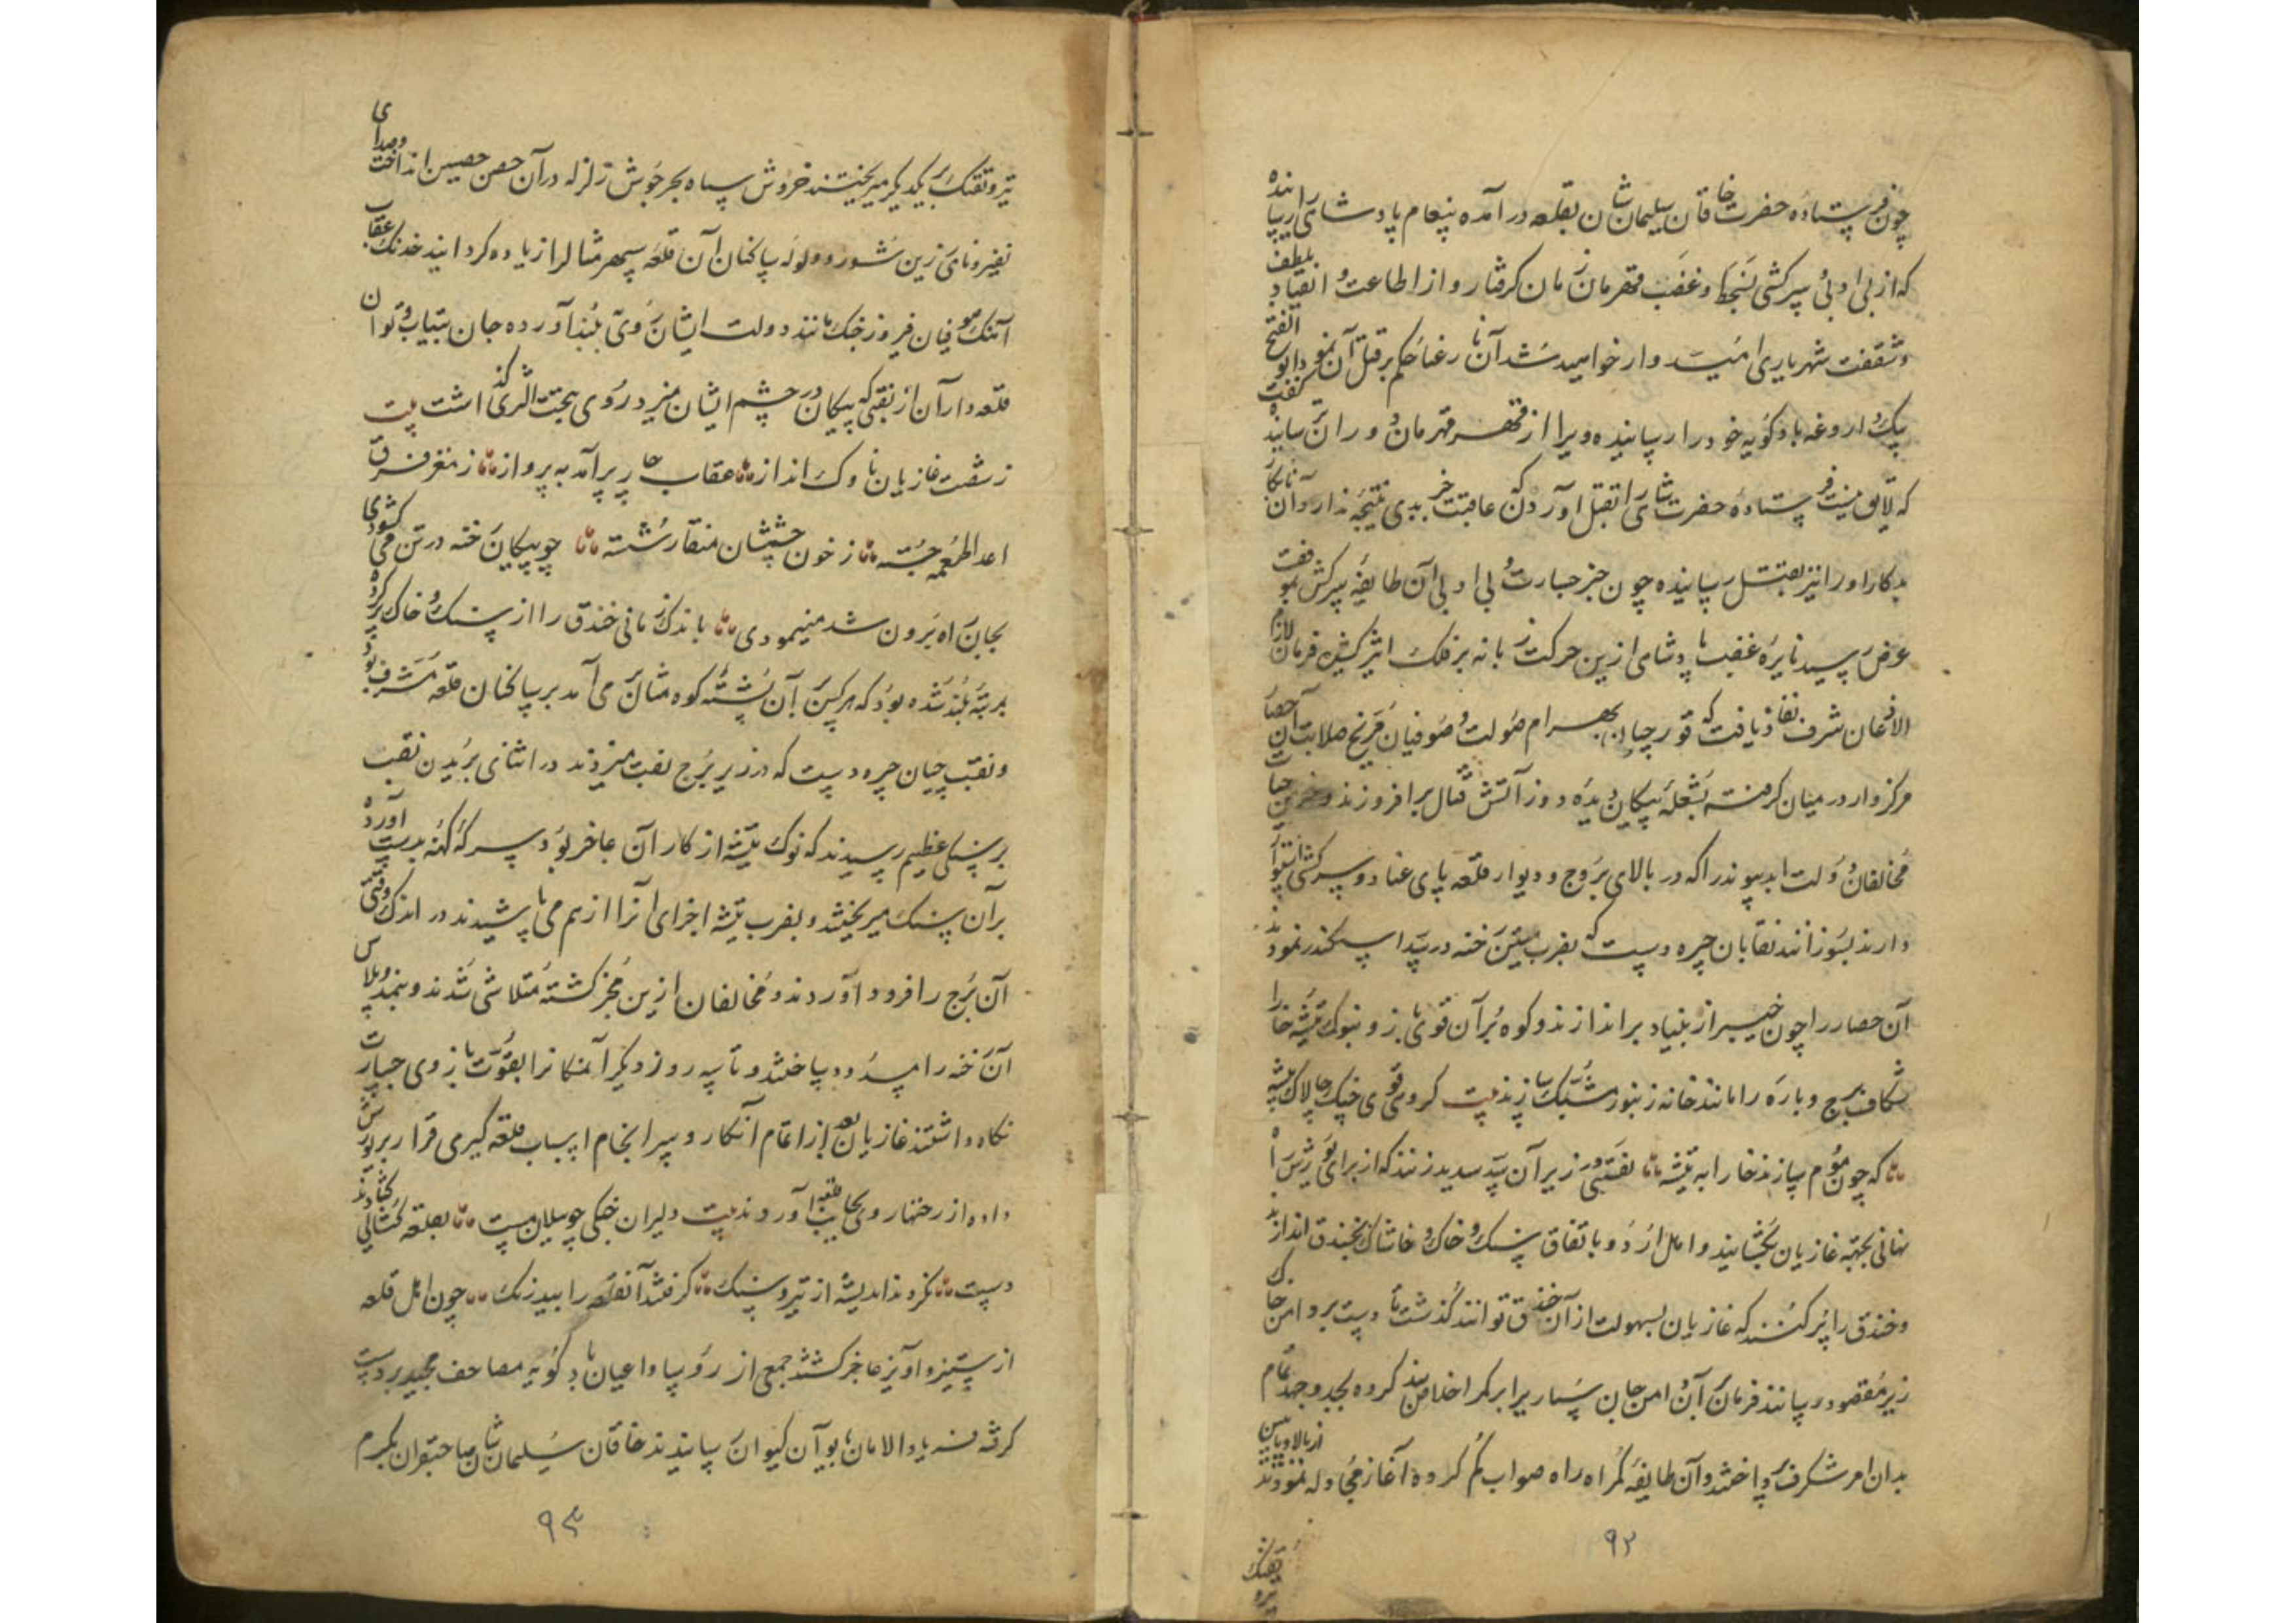 چون فرستاده حضرت خاقان سلیمان شان بقلعه در آمده پیغام پادشاهی رسانیده
که از بی ادبی و سرکشی بسخط و غضب قهرمان زمان گرفتار و از اطاعت و انقیاد بلطف
و شفقت شهریاری امیدوار خواهید شد آن نا رعنا حکم بر قتل آن نمود ابو الفتح
بیک داروغه بادکوبه خود را رسانیده ویرا از قهر قهرمان دوران ترسانیده گفت
که لایق نیست فرستاده حضرت شاهی را بقتل آوردن که عاقبت جز بدی نتیجه ندارد آن نابکار
بدکار او را نیز بقتل رسانیده چون خبر جسارت و بی ادبی آن طایفه سرکش بموقف
عرض رسید نایره غضب پادشاهی ازین حرکت زبانه بر فلک اثیر کشید فرمان لازم
الاذعان شرف نفاذ یافت که قورچیان بهرام صولت و صوفیان مریخ صلابت آن حصار
مرکزوار در میان گرفته بشعله پیکان دیده دوز آتش قتال برافروزند و خرمن حیات
مخالفان دولت ابد پیوند را که در بالای بروج و دیوار قلعه پای عناد و سرکشی استوار
دارند بسوزانند نقابان چیره دست که بضرب متین رخنه در سد اسکندر نمودند
آن حصار را چون خیبر از بنیاد براندازند و کوه بران قوی بازو بنوک تیشه خارا
شکاف برج و باره را مانند خانه زنبور مشبک سازند بیت گروهی قوی چنگ چالاک پیشه
که چون موم سازند خارا به تیشه نقبی در زیر آن سد سدید زنند که از برای یورش راه
نهانی بجهته غازیان بگشایند و اهل اردو باتفاق سنک و خاک و خاشاک بخندق اندازند
و خندق را پر کنند که غازیان بسهولت از آن خندق توانند گذشت تا دست بر دامن خاک
زیر مقصود رسانند فرمان بران دامن جان سپاری را بر کمر اخلاص بند کرده بجد و جهد تمام
بدان امر شگرف پرداختند و آن طایفه گمراه راه صواب گم کرده آغاز مجادله نمودند از بالا و پایین
تفنک
تیر و
۹۲
تیر و تفنک بر یکدیگر میریختند خروش سپاه بحر جوش زلزله در آن حصن حصین انداخت و صدای
نفیر و نای زرین شور و ولوله ساکنان آن قلعه سپهر مثال را زیاده گردانید خدنک عقاب
آهنک صوفیان فیروز جنک مانند دولت ایشان روی بلند آورده جان بیتاب و توان
قلعه داران از نقبی که پیکان در چشم ایشان میزد روی بجیت الثری گذاشت بیت
ز شصت غازیان ناوک انداز عقاب چار پر آمد به پرواز ز مغز فرق
اعدا طعمه جسته ز خون چشمشان منقار شسته چو پیکان رخنه در تن می گشودی
بجان راه برون شد مینمودی باندک زمانی خندق را از سنک و خاک پر کرده
بمرتبه بلند شده بود که هر کس بر آن پشته کوه مثال بر می آمد بر ساکنان قلعه مشرف بود
و نقب چیان چیره دست که در زیر برج نقب میزدند در اثنای بریدن نقب
بر سنگی عظیم رسیدند که نوک تیشه از کار آن عاجز بود سرکه کهنه بدست آورده
بر آن سنک میریختند و بضرب تیشه اجزای آنرا از هم می پاشیدند در اندک وقتی
آن برج را فرود آوردند و مخالفان ازین مخبر گشته متلاشی شدند و بنمد و پلاس
آن رخنه را مسدود ساختند و تا سه روز دیگر آنمکانرا بقوت بازوی جسارت
نگاه داشتند غازیان بعد از اتمام آنکار و سرانجام اسباب قلعه گیری قرار بر یورش
داده از رخنها روی بجانب قلعه آوردند بیت دلیران جنگی چو پیلان مست بقلعه گشائی گشادند
دست نکردند اندیشه از تیر و سنک گرفتند آنقلعه را بیدرنک چون اهل قلعه
از ستیز و آویز عاجز گشتند جمعی از رؤسا و اعیان بادکوبه مصاحف مجید بر دست
گرفته فریاد الامان بایوان کیوان رسانیدند خاقان سلیمان شان صاحبقران بکرم
۹۳